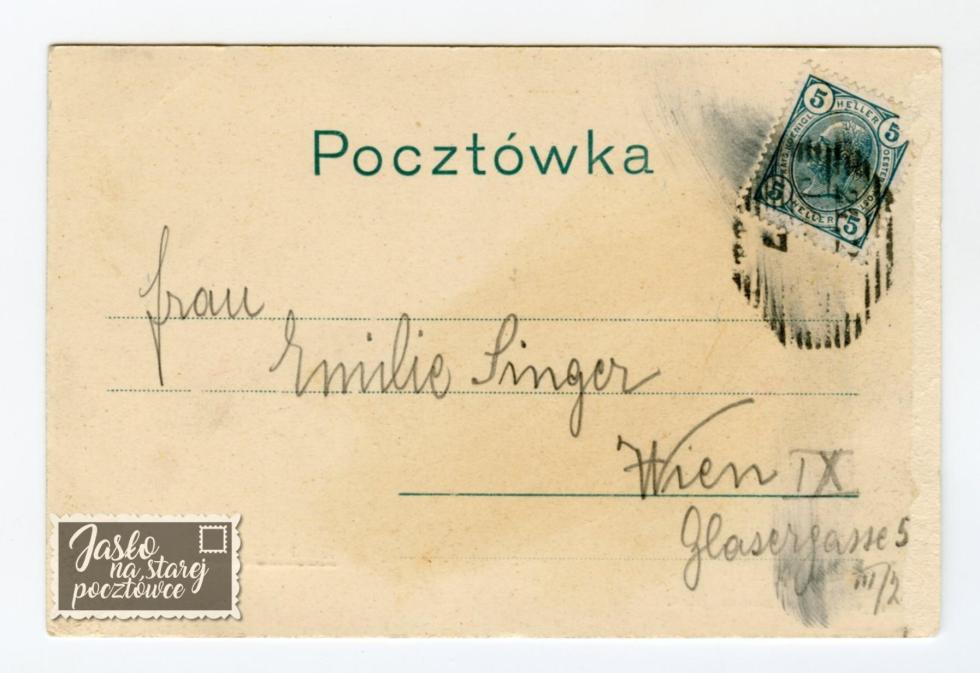 Pocztówka
5 HELLER 5
5 HELLER 5
Frau
Emilie Singer
Wien IX
Glasergasse 5
III/2
Jasło
na starej
pocztówce